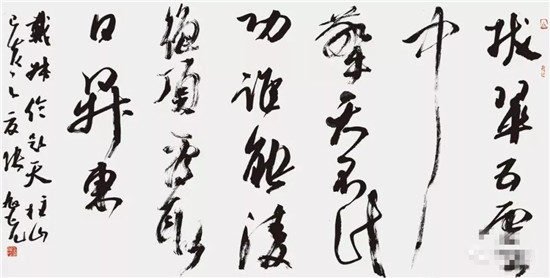 拔翠五雲
中
擎天不计
功谁能凌
绝顶看取
日昇東
戴叔伦天柱山
己亥之夏张旭光